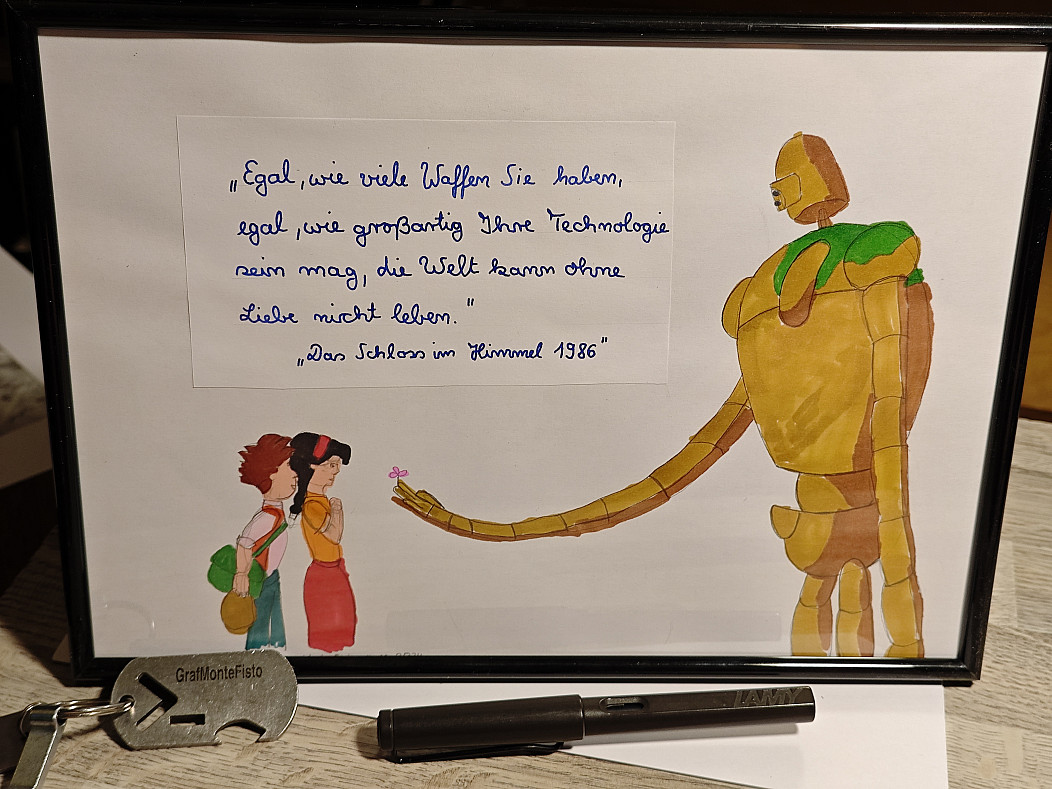 „Egal, wie viele Waffen Sie haben,
egal, wie großartig Ihre Technologie
sein mag, die Welt kann ohne
Liebe nicht leben."
„Das Schloss im Himmel 1986"
GrafMonteFisto
LAMY